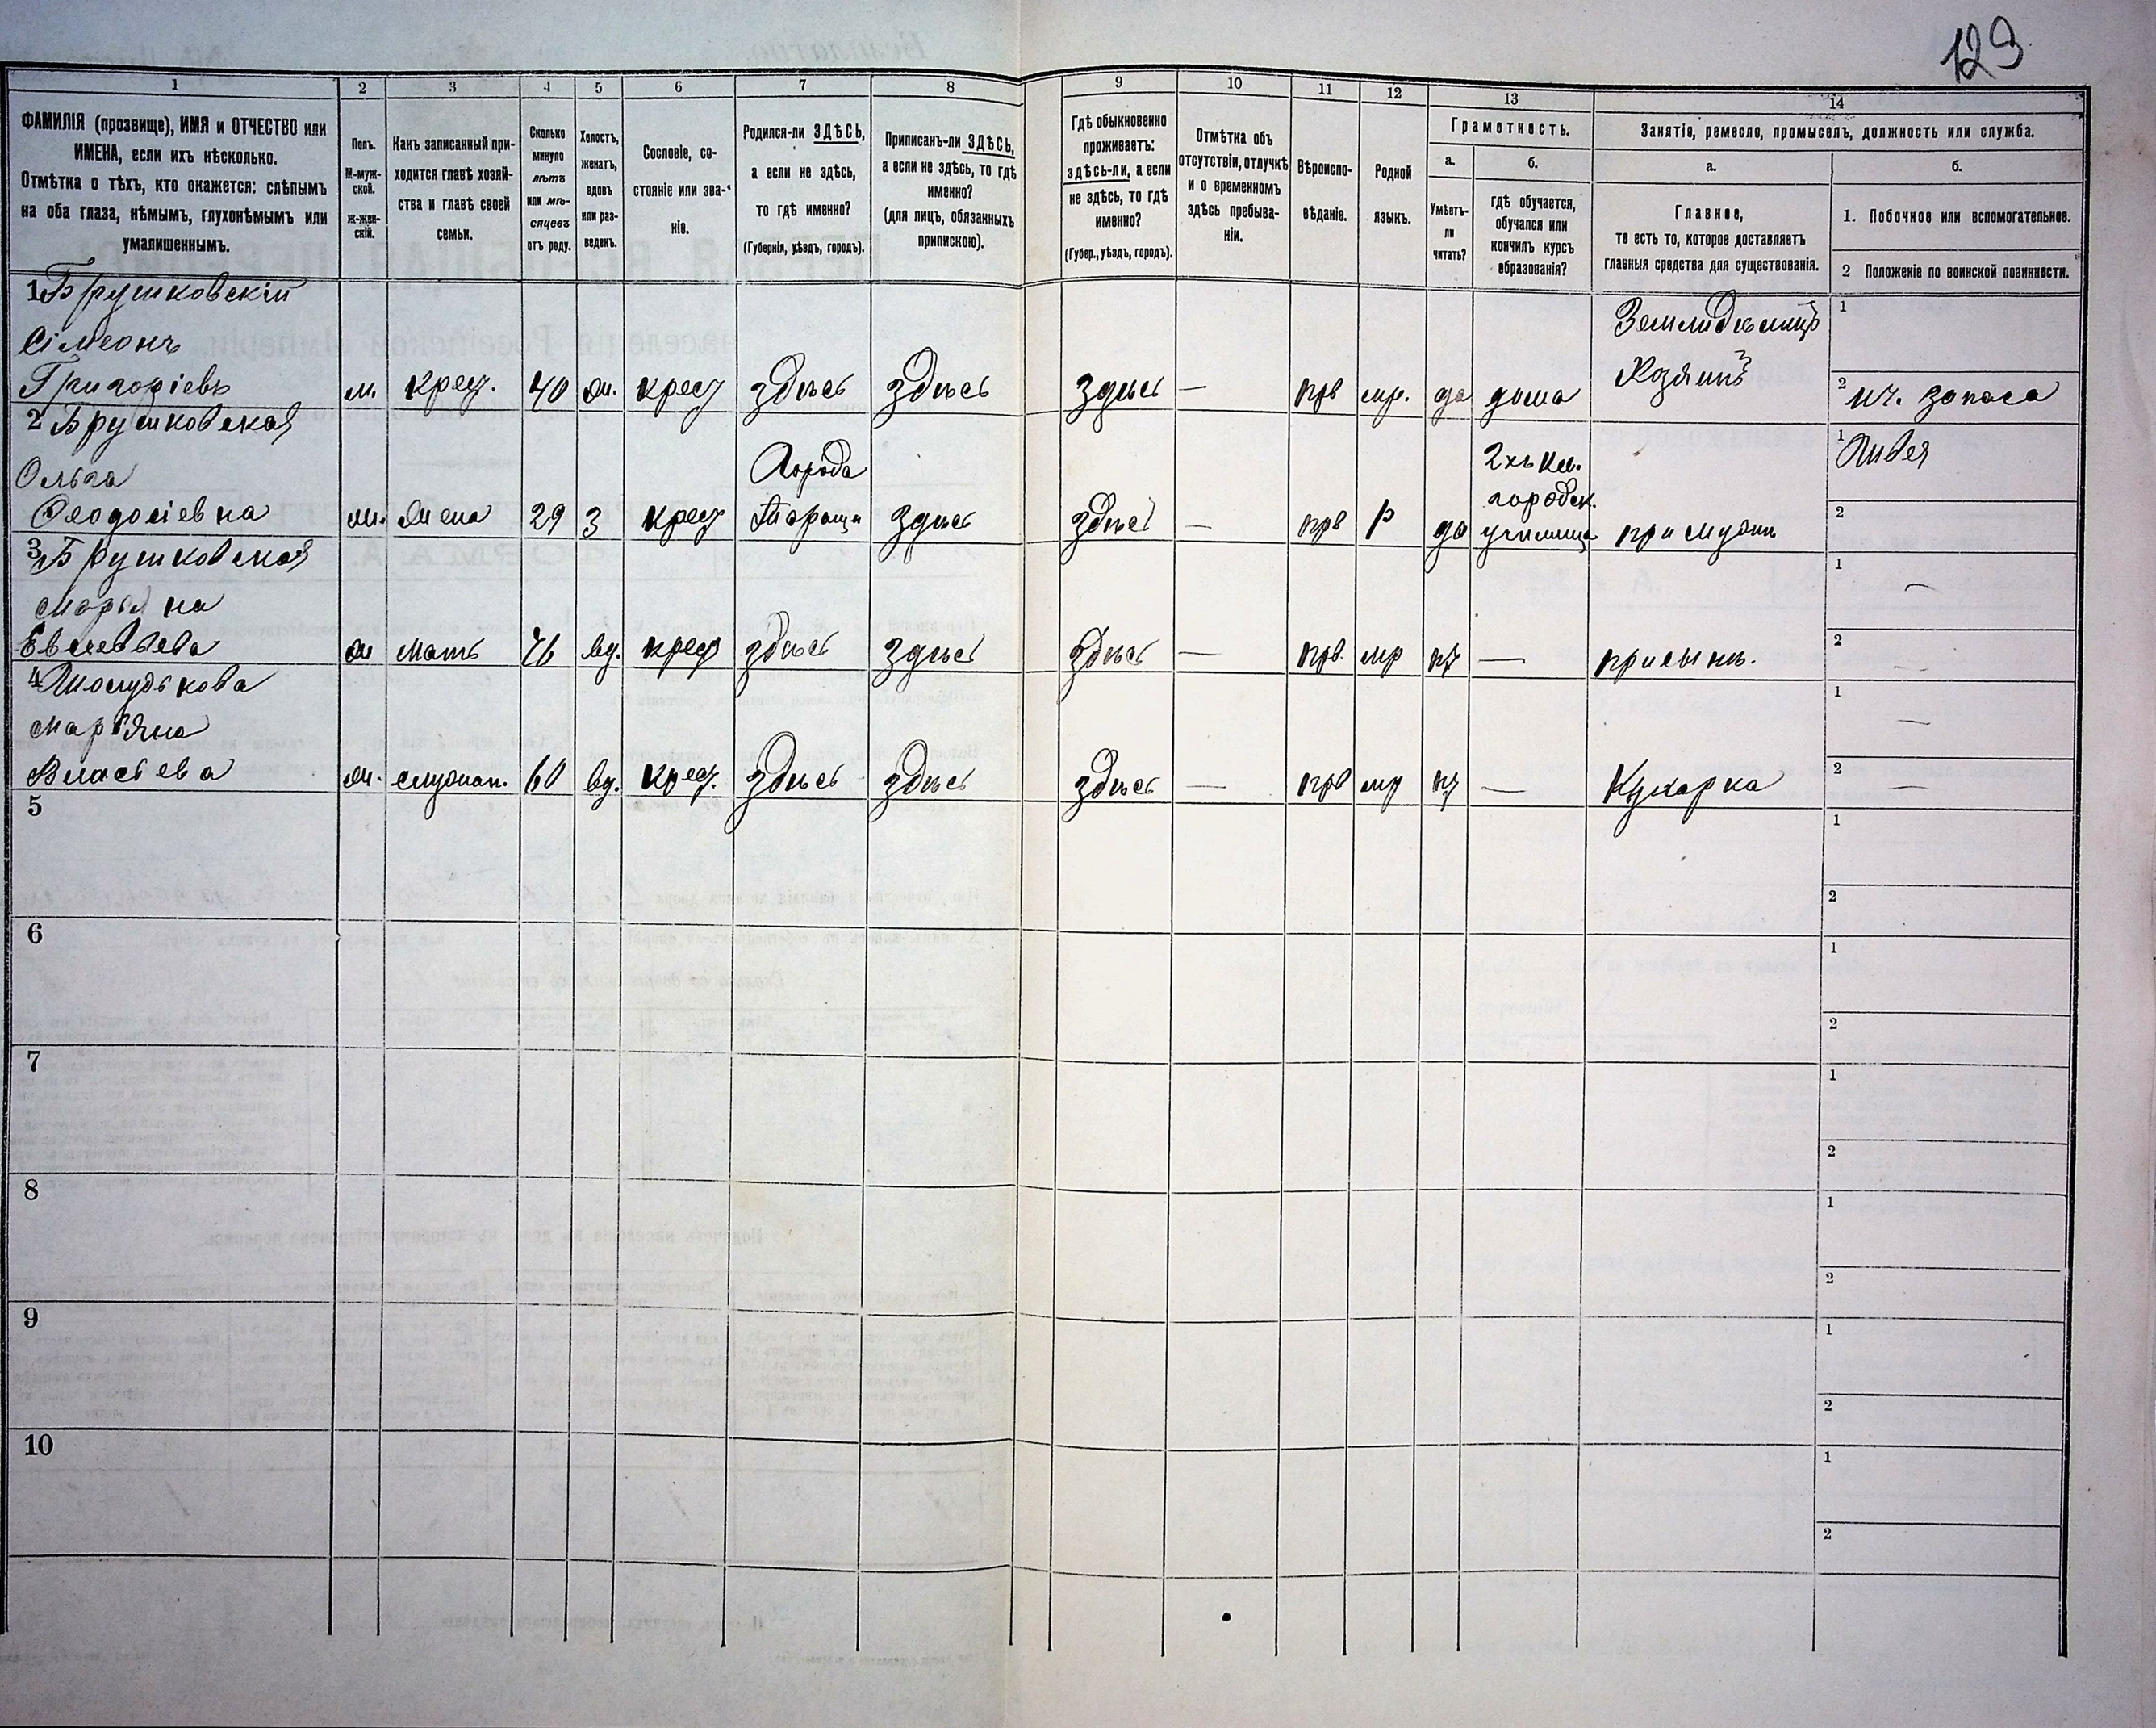 129
1
2
3
4
5
6
7
8
9
10
11
12
13
14
ФАМИЛІЯ (прозвище), ИМЯ и ОТЧЕСТВО или
ИМЕНА, если ихъ нѣсколько.
Отмѣтка о тѣхъ, кто окажется: слѣпымъ
на оба глаза, нѣмымъ, глухонѣмымъ или
умалишеннымъ.
Полъ.
М-муж-
ской.
ж-жен-
скій.
Какъ записанный при-
ходится главѣ хозяй-
ства и главѣ своей
семьи.
Сколько
минуло
лѣтъ
или мѣ-
сяцевъ
отъ роду.
Холостъ,
женатъ,
вдовъ
или раз-
веденъ.
Сословіе, со-
стояніе или зва-
ніе.
Родился-ли ЗДѢСЬ,
а если не здѣсь,
то гдѣ именно?
(Губернія, уѣздъ, городъ).
Приписанъ-ли ЗДѢСЬ,
а если не здѣсь, то гдѣ
именно?
(для лицъ, обязанныхъ
припискою).
Гдѣ обыкновенно
проживаетъ:
здѣсь-ли, а если
не здѣсь, то гдѣ
именно?
(Губер., уѣздъ, городъ).
Отмѣтка объ
отсутствіи, отлучкѣ
и о временномъ
здѣсь пребыва-
ніи.
Вѣроиспо-
вѣданіе.
Родной
языкъ.
Грамотность.
а.
б.
Умѣетъ-
ли
читать?
гдѣ обучается,
обучался или
кончилъ курсъ
образованія?
Занятіе, ремесло, промыселъ, должность или служба.
а.
б.
Главное,
то есть то, которое доставляетъ
главныя средства для существованія.
1. Побочное или вспомогательное.
2 Положеніе по воинской повинности.
1 Брушковскій
Сімеонъ
Григоріевъ м. крест. 40 ж. крест здѣсь здѣсь здѣсь — прв мр. да дома
Земледѣлецъ
Хозяинъ
1
2 ич. запаса
2 Брушковская
Ольга
Феодосіевна ж. Жена 29 з крест
Города
Таращи здѣсь здѣсь — прв р да
2хъ кл.
городск.
училища при мужи
1 Швея
2
3 Брушковская
Марьяна
Евсевьева ж мать 76 вд. крест здѣсь здѣсь здѣсь — прв. мр нт — при сынѣ.
1 —
2 —
4
Марьяна
Власьева ж. служан. 60 вд. крест. здѣсь здѣсь здѣсь — прв мр нт — Кухарка
1 —
2 —
5
1
2
6
1
2
7
1
2
8
1
2
9
1
2
10
1
2